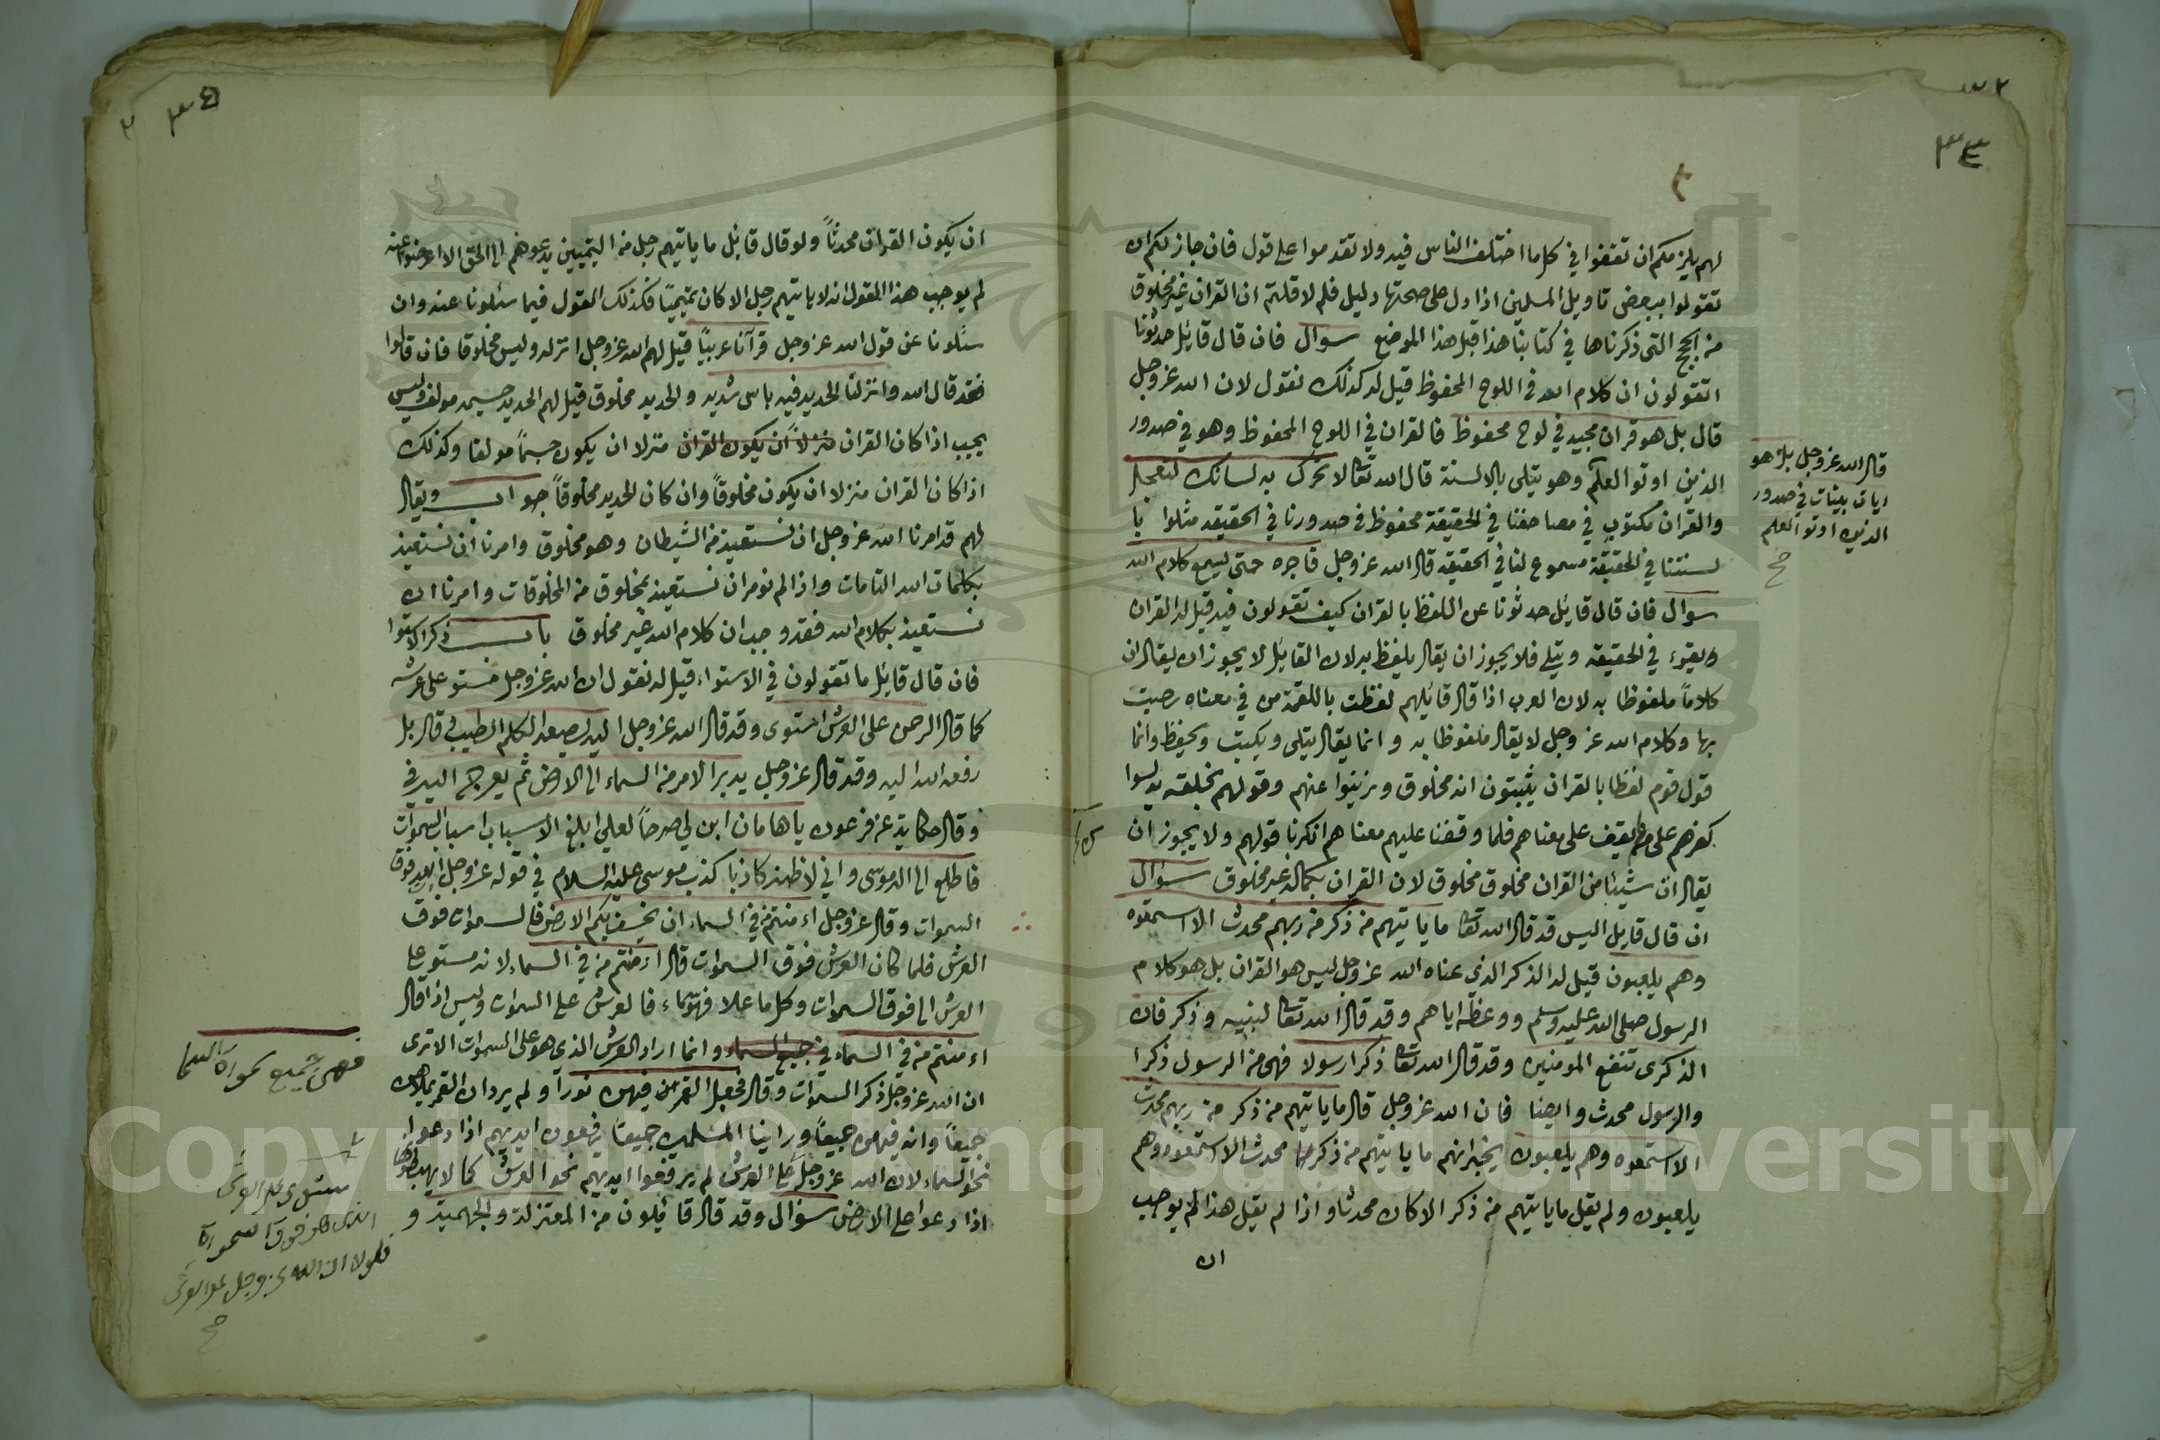 ٣٤
لهم يلزمكم ان تقفوا في كل ما اختلف الناس فيه ولا تقدموا على قول فان جاز لكم ان
تقولوا ببعض تاويل المسلمين اذا دل على صحتها دليل فلم لا قلتم ان القران غير مخلوق
من الحجج التي ذكرناها في كتابنا هذا قبل هذا الموضع سوال فان قال قائل حدثونا
اتقولون ان كلام الله في اللوح المحفوظ قيل له كذلك نقول لان الله عز وجل
قال بل هو قران مجيد في لوح محفوظ فالقران في اللوح المحفوظ وهو في صدور
الذين اوتوا العلم وهو يتلى بالالسنة قال الله تعالى لا تحرك به لسانك لتعجل
والقران مكتوب في مصاحفنا في الحقيقة محفوظ في صدورنا في الحقيقه متلوا با
لسنتنا في الحقيقة مسموع لنا في الحقيقه قال الله عز وجل فاجره حتى يسمع كلام الله
سوال فان قال قائل حدثونا عن اللفظ بالقران كيف تقولون فيه قيل له القران
ويقرء في الحقيقه ويتلى فلا يجوز ان يقال يلفظ به لان القائل لا يجوز ان يقال ان
كلاماً ملفوظا به لان العرب اذا قال قائلهم لفظت باللقمة من في معناه رميت
بها وكلام الله عز وجل لا يقال ملفوظا به و انما يقال يتلى ويكتب ويحفظ وانما
قول قوم لفظنا بالقران يثبتون انه مخلوق ويزينوا عنهم وقولهم بخلقه يدلسوا
كفرهم على من لم يقف على معناهم فلما وقفنا عليهم معناهم انكرنا قولهم ولا يجوز ان
يقال ان شيئا من القران مخلوق لان القران بكماله غير مخلوق سؤال
ان قال قايل اليس قد قال الله تعالى ما ياتيهم من ذكر من ربهم محدث الا استمعوه
وهم يلعبون قيل له الذكر الذي عناه الله عز وجل ليس هو القران بل هو كلام
الرسول صلى الله عليه وسلم ووعظه اياهم وقد قال الله تعالى لنبيه وذكر فان
الذكرى تنفع المومنين وقد قال الله تعالى ذكرا رسولا فهي من الرسول ذكرا
والرسول محدث وايضا فان الله عز وجل قال ما ياتيهم من ذكر من ربهم محدث
الا استمعوه وهم يلعبون يخبر انهم ما ياتيهم من ذكر محدث الا استمعوه وهم
يلعبون ولم يقل ما ياتيهم من ذكر الا كان محدثا واذا لم يقل هذا لم يوجب
ان
قال الله عز وجل بل هو
ايات بينات في صدور
الذين اوتو العلم
صح
٣٥
ان يكون القران محدثاً ولو قال قائل ما ياتيهم رجل من التميميين يدعوهم الى الحق الا اعرضوا عنه
لم يوجب هذا القول انه لا ياتيهم رجل الا كان تميميًا فكذلك القول فيما سئلونا عنه وان
سئلونا عن قول الله عز وجل قرآنا عربيًا قيل لهم الله عز وجل انزله وليس مخلوقا فان قالوا
فقد قال الله وانزلنا الحديد فيه باس شديد والحديد مخلوق قيل لهم الحديد جسيمه مولف وليس
يجب اذا كان القران منزلاً ان يكون القران منزلا ان يكون جسماً مولفا وكذلك
اذا كان القران منزلا ان يكون مخلوقاً وان كان الحديد مخلوقاً جواب ويقال
لهم قد امرنا الله عز وجل ان نستعيذ من الشيطان وهو مخلوق وامرنا ان نستعيذ
بكلمات الله التامات واذا لم نومر ان نستعيذ بمخلوق من المخلوقات وامرنا ان
نستعيذ بكلام الله فقد وجب ان كلام الله غير مخلوق باب ذكر الاستوا
فان قال قائل ما تقولون في الاستواء قيل له نقول ان الله عز وجل مستو على عرشه
كما قال الرحمن على العرش استوى وقد قال الله عز وجل اليه يصعد الكلم الطيب وقال بل
رفعه الله اليه وقد قال عز وجل يدبر الامر من السماء الى الارض ثم يعرج اليه في
وقال حكاية عن فرعون ياهامان ابن لي صرحاً لعلي ابلغ الاسباب اسباب السموات
فاطلع الى اله موسى واني لاظنه كاذبا كذب موسى عليه السلام في قوله عز وجل انه فوق
السموات وقال عز وجل اءمنتم من في السماء ان يخسف بكم الارض فالسموات فوق
العرش فلما كان العرش فوق السموات قال اءمنتم من في السماء لانه مستو على
العرش الى فوق السموات وكل ما علا فهو سماء فالعرش على السموات وليس اذا قال
اءمنتم من في السماء في جميع السماء وانما اراد العرش الذي هو على السموات الا ترى
ان الله عز وجل ذكر السموات وقال وجعل القمر فيهن نوراً ولم يرد ان القمر يملاهن
جميعاً وانه فيهن جميعاً وراينا المسلمين جميعًا يرفعون ايديهم اذا دعوا
نحو السماء لان الله عز وجل على العرش لم يرفعوا ايديهم نحو العرش كما لا يحطونها
اذا دعوا على الارض سؤال وقد قال قائلون من المعتزلة والجهمية و
مستوى على العرش
الذي هو فوق السموات
فلولا ان الله عز وجل على العرش
صح
Copyright © King Saud University